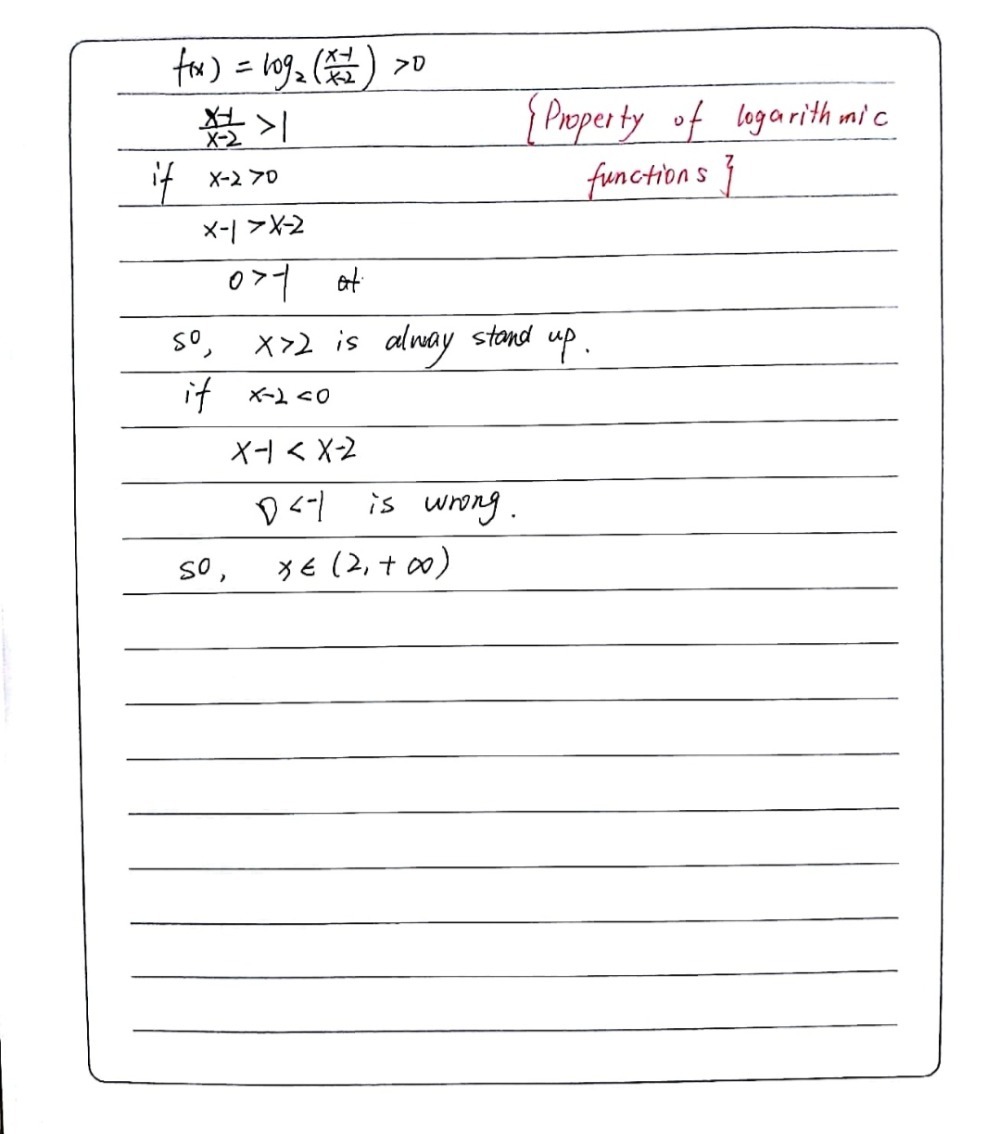 f(x) = log₂(x-1/x-2) >0
x-1/x-2 >1 {Property of logarithmic
if x-2 >0 functions}
x-1 >x-2
0>-1
so, x>2 is alway stand up.
if x-2 <0
x-1 < x-2
0 <-1 is wrong.
so, x∈ (2, + ∞)